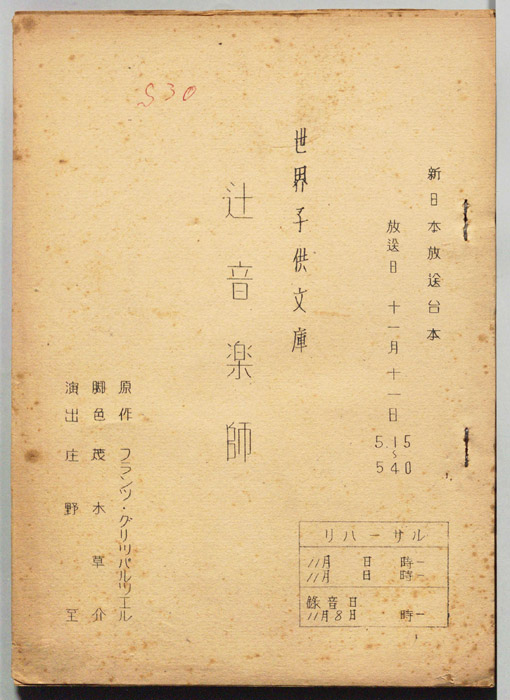 新日本放送台本
放送日 十一月十一日
5.15
~
540
世界子供文庫
辻音楽師
原作 フランツ・グリツパルツエル
脚色 茂木草介
演出 庄野至
リハーサル
11月 日 時―
11月 日 時―
錄音日
11月8日 時―
S30